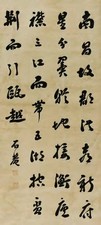 南昌故郡洪都新府
星分翼軫地接衡廬
襟三江而帶五湖控蠻
荊而引甌越
石菴